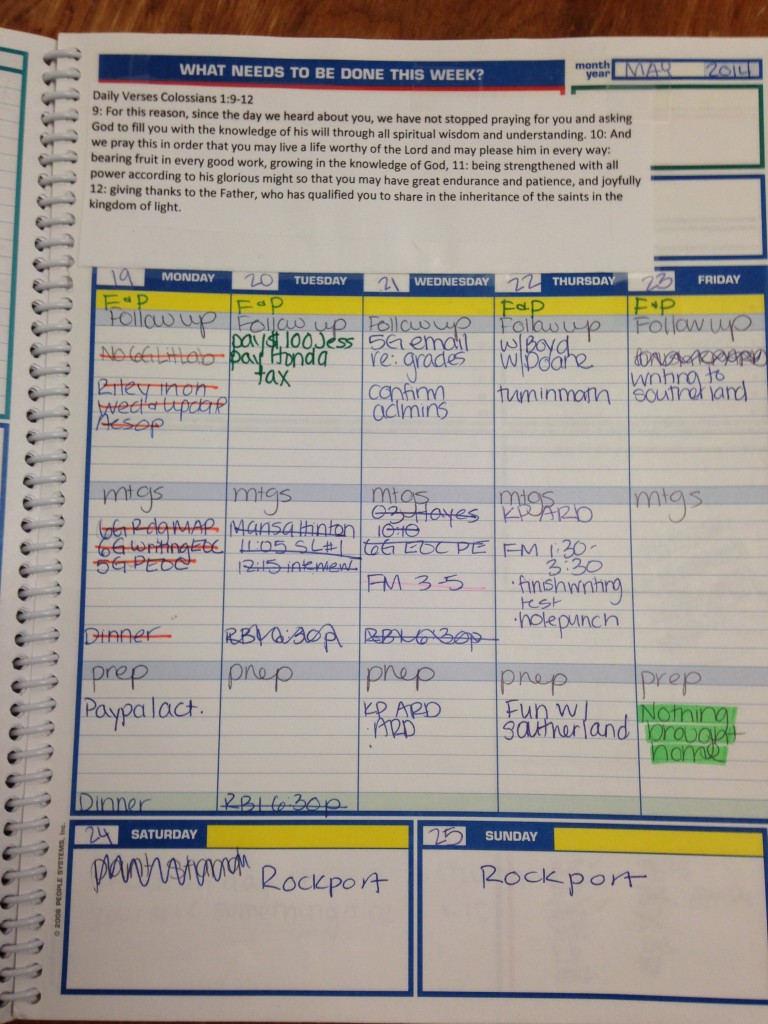 WHAT NEEDS TO BE DONE THIS WEEK?
month
year
MAY 2014
Daily Verses Colossians 1:9-12
9: For this reason, since the day we heard about you, we have not stopped praying for you and asking
God to fill you with the knowledge of his will through all spiritual wisdom and understanding. 10: And
we pray this in order that you may live a life worthy of the Lord and may please him in every way:
bearing fruit in every good work, growing in the knowledge of God, 11: being strengthened with all
power according to his glorious might so that you may have great endurance and patience, and joyfully
12: giving thanks to the Father, who has qualified you to share in the inheritance of the saints in the
kingdom of light.
19 MONDAY
F&P
Follow up
No 6G Lit Lab
Riley in on
Wed & update
Aesop
mtgs
6G Rdg MAP
6G Writing EOC
5G PEOC
Dinner
prep
Paypal act.
Dinner
20 TUESDAY
F&P
Follow up
pay $100 Jess
pay Honda
tax
mtgs
Mansa Hinton
11:05 SL#1
12:15 interview
RBI 6:30p
prep
RBI 6:30p
21 WEDNESDAY
Follow up
5G email
re: grades
confirm
admins
mtgs
Hayes
10:10
6G EOC PE
FM 3-5
RBI 6:30p
prep
KP ARD
ARD
22 THURSDAY
F&P
Follow up
w/Boyd
w/Doane
turn in math
mtgs
KP ARD
FM 1:30-
3:30
·finish writing
test
·hole punch
prep
Fun w/
Southerland
23 FRIDAY
F&P
Follow up
writing to
southerland
mtgs
prep
Nothing
brought
home
24 SATURDAY
Rockport
25 SUNDAY
Rockport
© 2008 PEOPLE SYSTEMS, Inc.